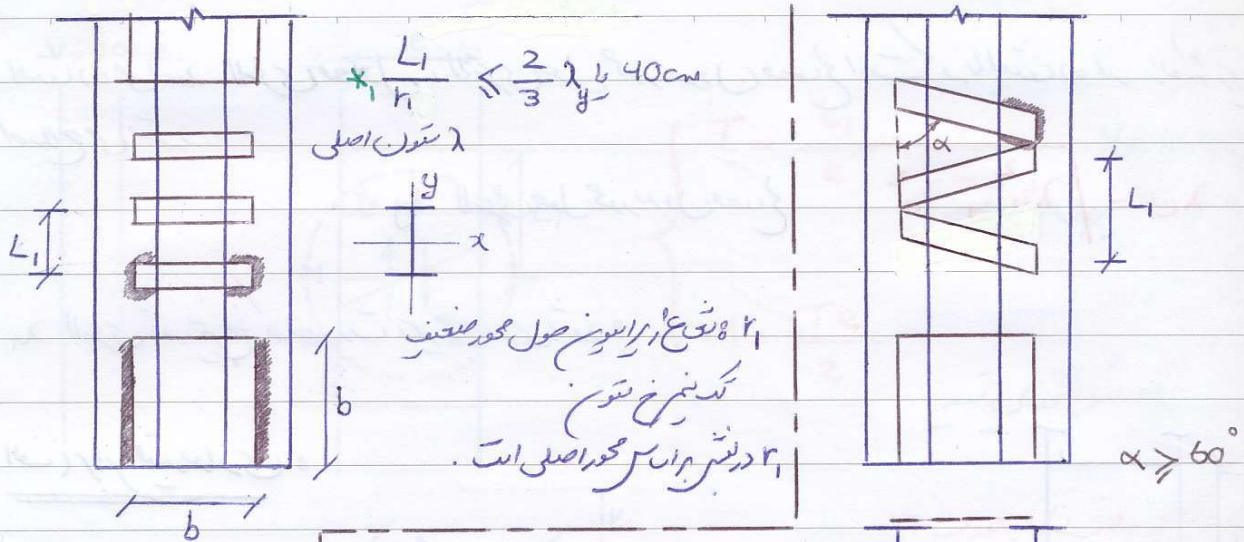 *₁ L₁/r₁ ≤ 2/3 λy یا 40cm
λ ستون اصلی
y
x
L₁
r₁ : شعاع ژیراسیون حول محور ضعیف
تک نیمرخ ستون
r₁ در نبشی بر اساس محور اصلی است.
b
b
α
L₁
α ≥ 60°